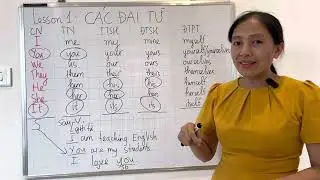 Lesson 1: CÁC ĐẠI TỪ
CN TN TTSH ĐTSH ĐTPT
I me my mine myself
You you your yours yourself/yourselves
We us our ours ourselves
They them their theirs themselves
He him his his himself
She her her hers herself
It it its its itself
I am teaching English
You are my students.
I love you